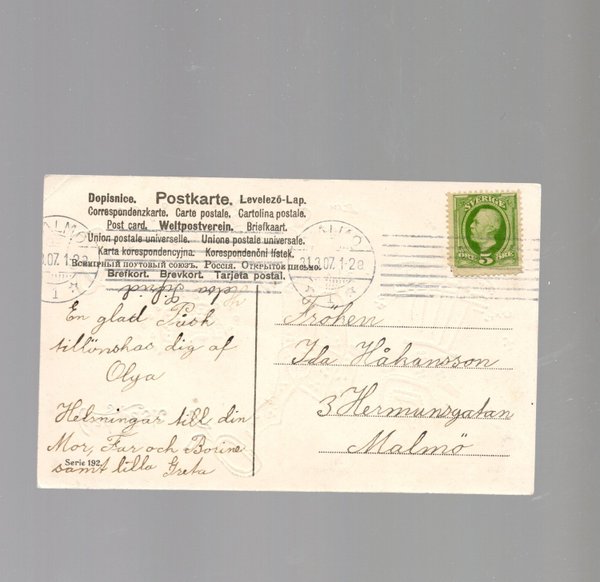 Dopisnice. Postkarte. Levelező-Lap.
Correspondenzkarte. Carte postale. Cartolina postale.
Post card. Weltpostverein. Briefkaart.
Union postale universelle. Unione postale universale.
Karta korespondencyjna. Korespondenční lístek.
Всемірный почтовый союзъ. Россія. Открытое письмо.
Brefkort. Brevkort. Tarjeta postal.
MALMÖ
07. 1-2 a
1
MALMÖ
31.3.07. 1-2 a
1
SVERIGE
5
FEM ÖRE
En glad Påsk
tillönskas dig af
Olga
Helsningar till din
Mor, Far och
samt lilla Greta
Serie 192
Fröken
Ida Håkansson
3 Hermansgatan
Malmö